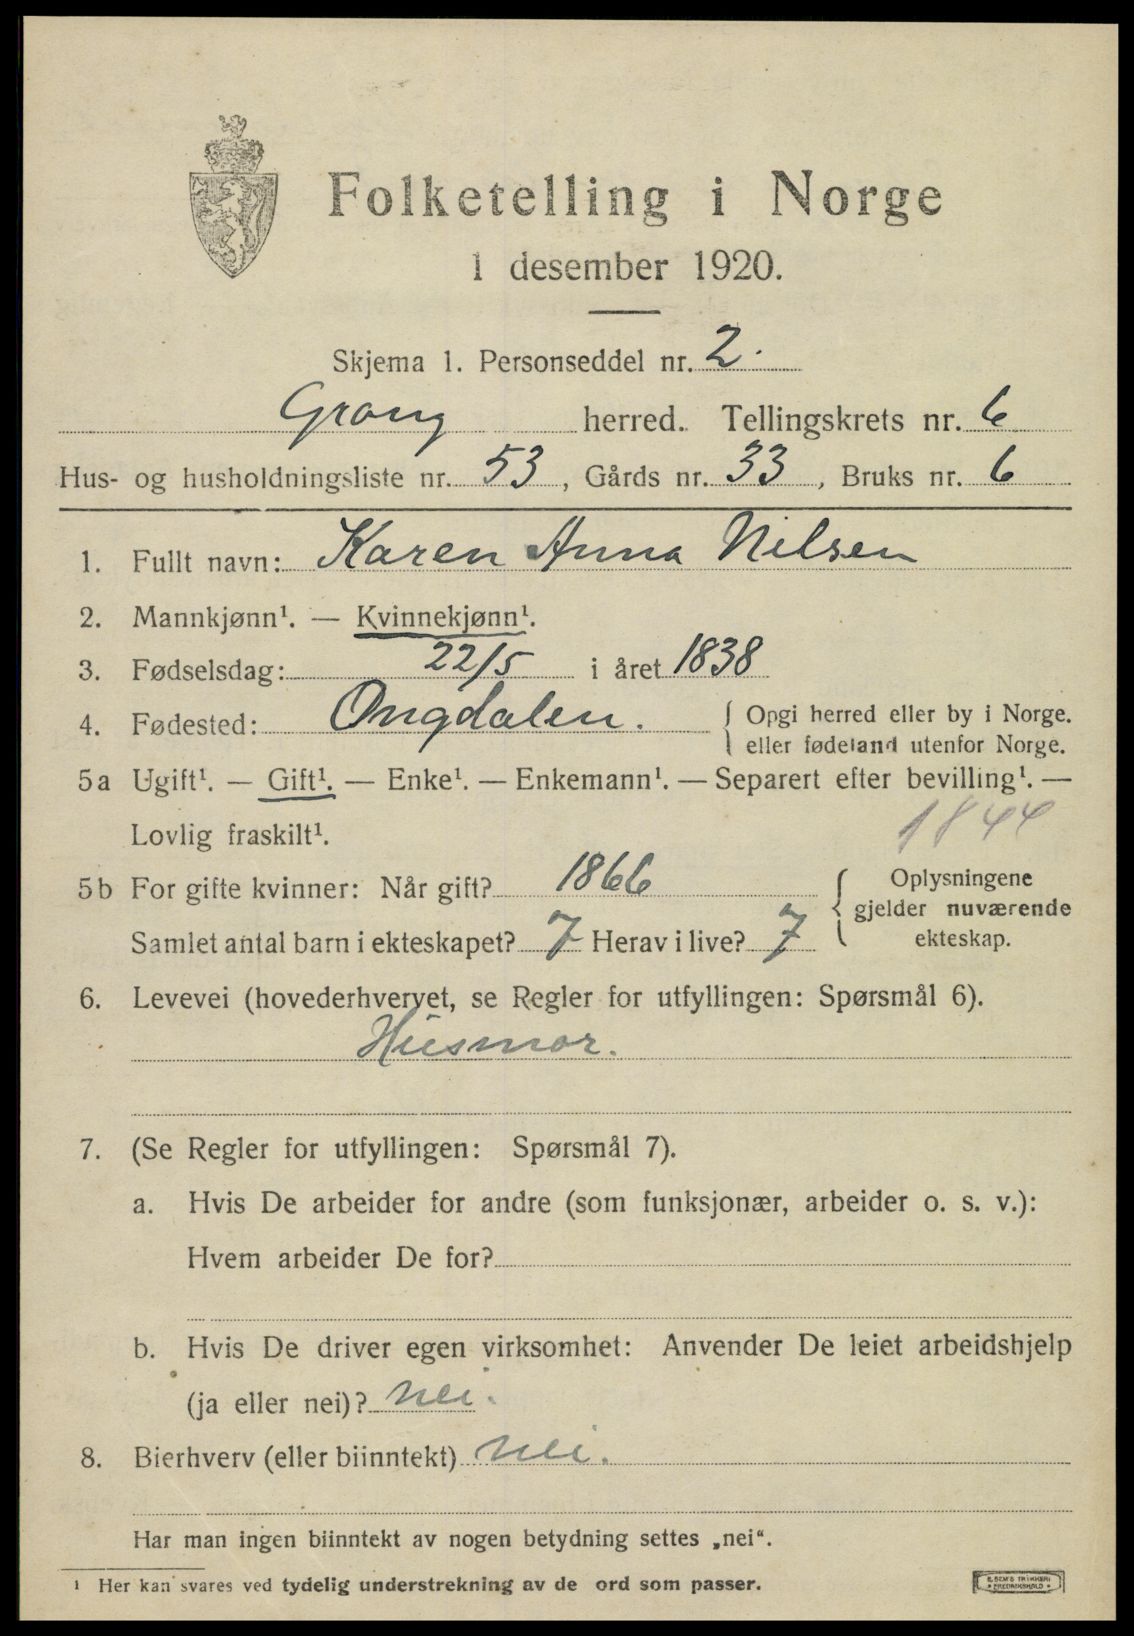 Folketelling i Norge
1 desember 1920.
Skjema 1. Personseddel nr. 2.
Grong herred. Tellingskrets nr. 6
Hus- og husholdningsliste nr. 53, Gårds nr. 33, Bruks nr. 6
1. Fullt navn: Karen Anna Nilsen
2. Mannkjønn¹. — Kvinnekjønn¹.
3. Fødselsdag: 22/5 i året 1838
4. Fødested: Ongdalen. { Opgi herred eller by i Norge.
eller fødeland utenfor Norge.
5a Ugift¹. — Gift¹. — Enke¹. — Enkemann¹. — Separert efter bevilling¹. —
Lovlig fraskilt¹. 1844
5b For gifte kvinner: Når gift? 1866
Samlet antal barn i ekteskapet? 7 Herav i live? 7
{ Oplysningene
gjelder nuværende
ekteskap.
6. Levevei (hovederhvervet, se Regler for utfyllingen: Spørsmål 6).
Husmor.
7. (Se Regler for utfyllingen: Spørsmål 7).
a. Hvis De arbeider for andre (som funksjonær, arbeider o. s. v.):
Hvem arbeider De for?
b. Hvis De driver egen virksomhet: Anvender De leiet arbeidshjelp
(ja eller nei)? nei.
8. Bierhverv (eller biinntekt) nei.
Har man ingen biinntekt av nogen betydning settes „nei“.
¹ Her kan svares ved tydelig understrekning av de ord som passer.
FREDRIKSHALD